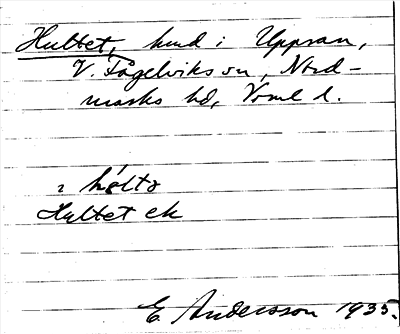 Hultet, hmd i Uppsan,
V. Fågelviks sn, Nord-
marks hd, Vrml d.
i hølta
Hultet ek
E. Andersson 1935.